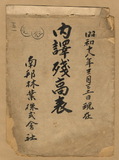 昭和十八年三月三十一日現在
内譯殘高表
南邦林業株式會社